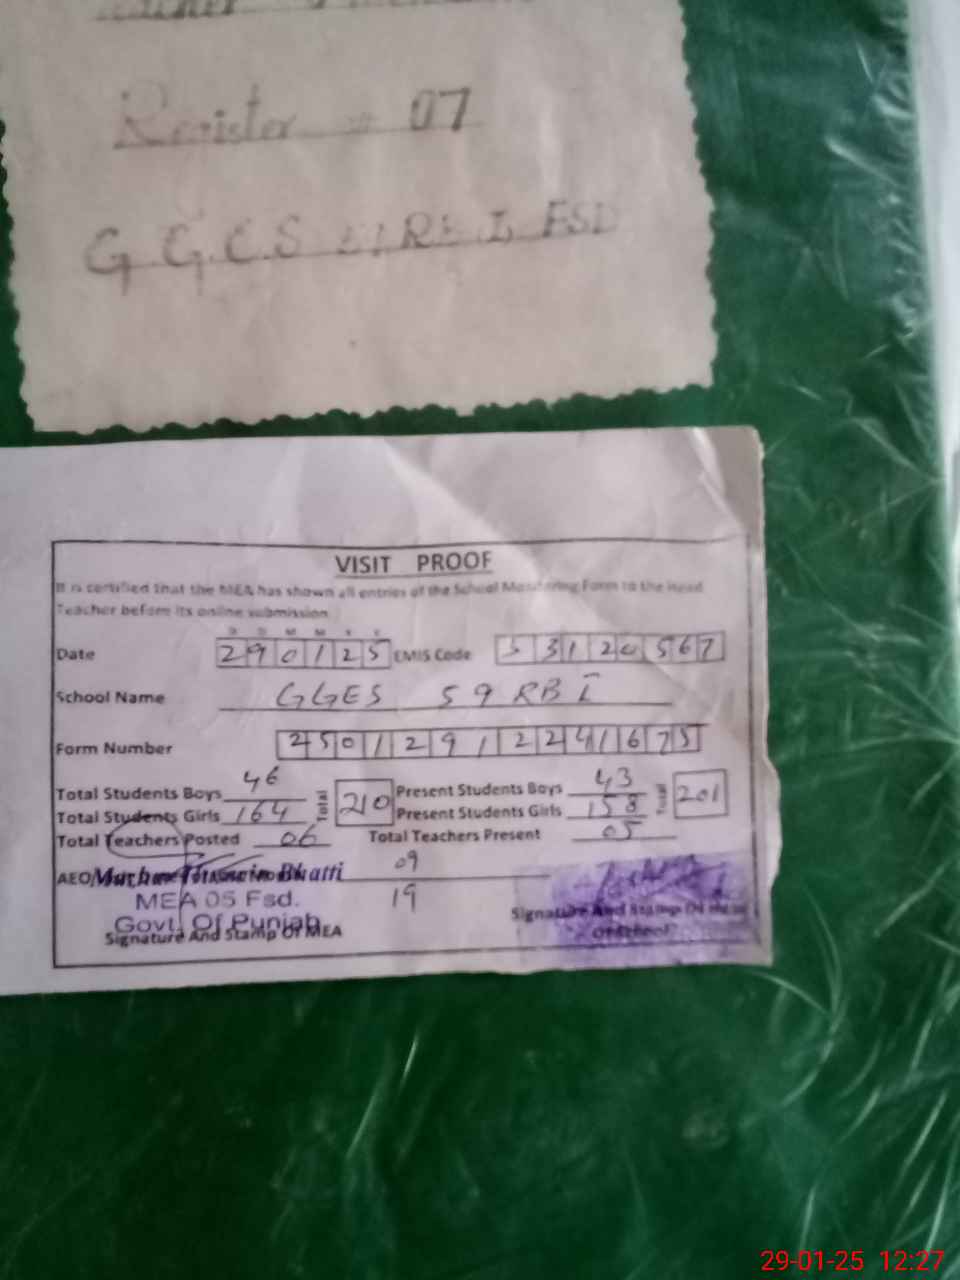 Register # 07
G.G.C.S RB I, FSD
VISIT PROOF
It is certified that the MEA has shown all entries of the School Monitoring Form to the Head
Teacher before its online submission
D D M M Y Y
Date 290125 EMIS Code 33120567
School Name GGES 59 RB I
Form Number 25012912241675
Total Students Boys 46 Total 210 Present Students Boys 43 Total 201
Total Students Girls 164 Present Students Girls 158
Total Teachers Posted 06 Total Teachers Present 05
AEO Hussain Bhatti 09
MEA 05 Fsd. 19
Govt. Of Punjab
Signature And Stamp Of MEA
Signature And Stamp Of Head
Of School
29-01-25 12:27